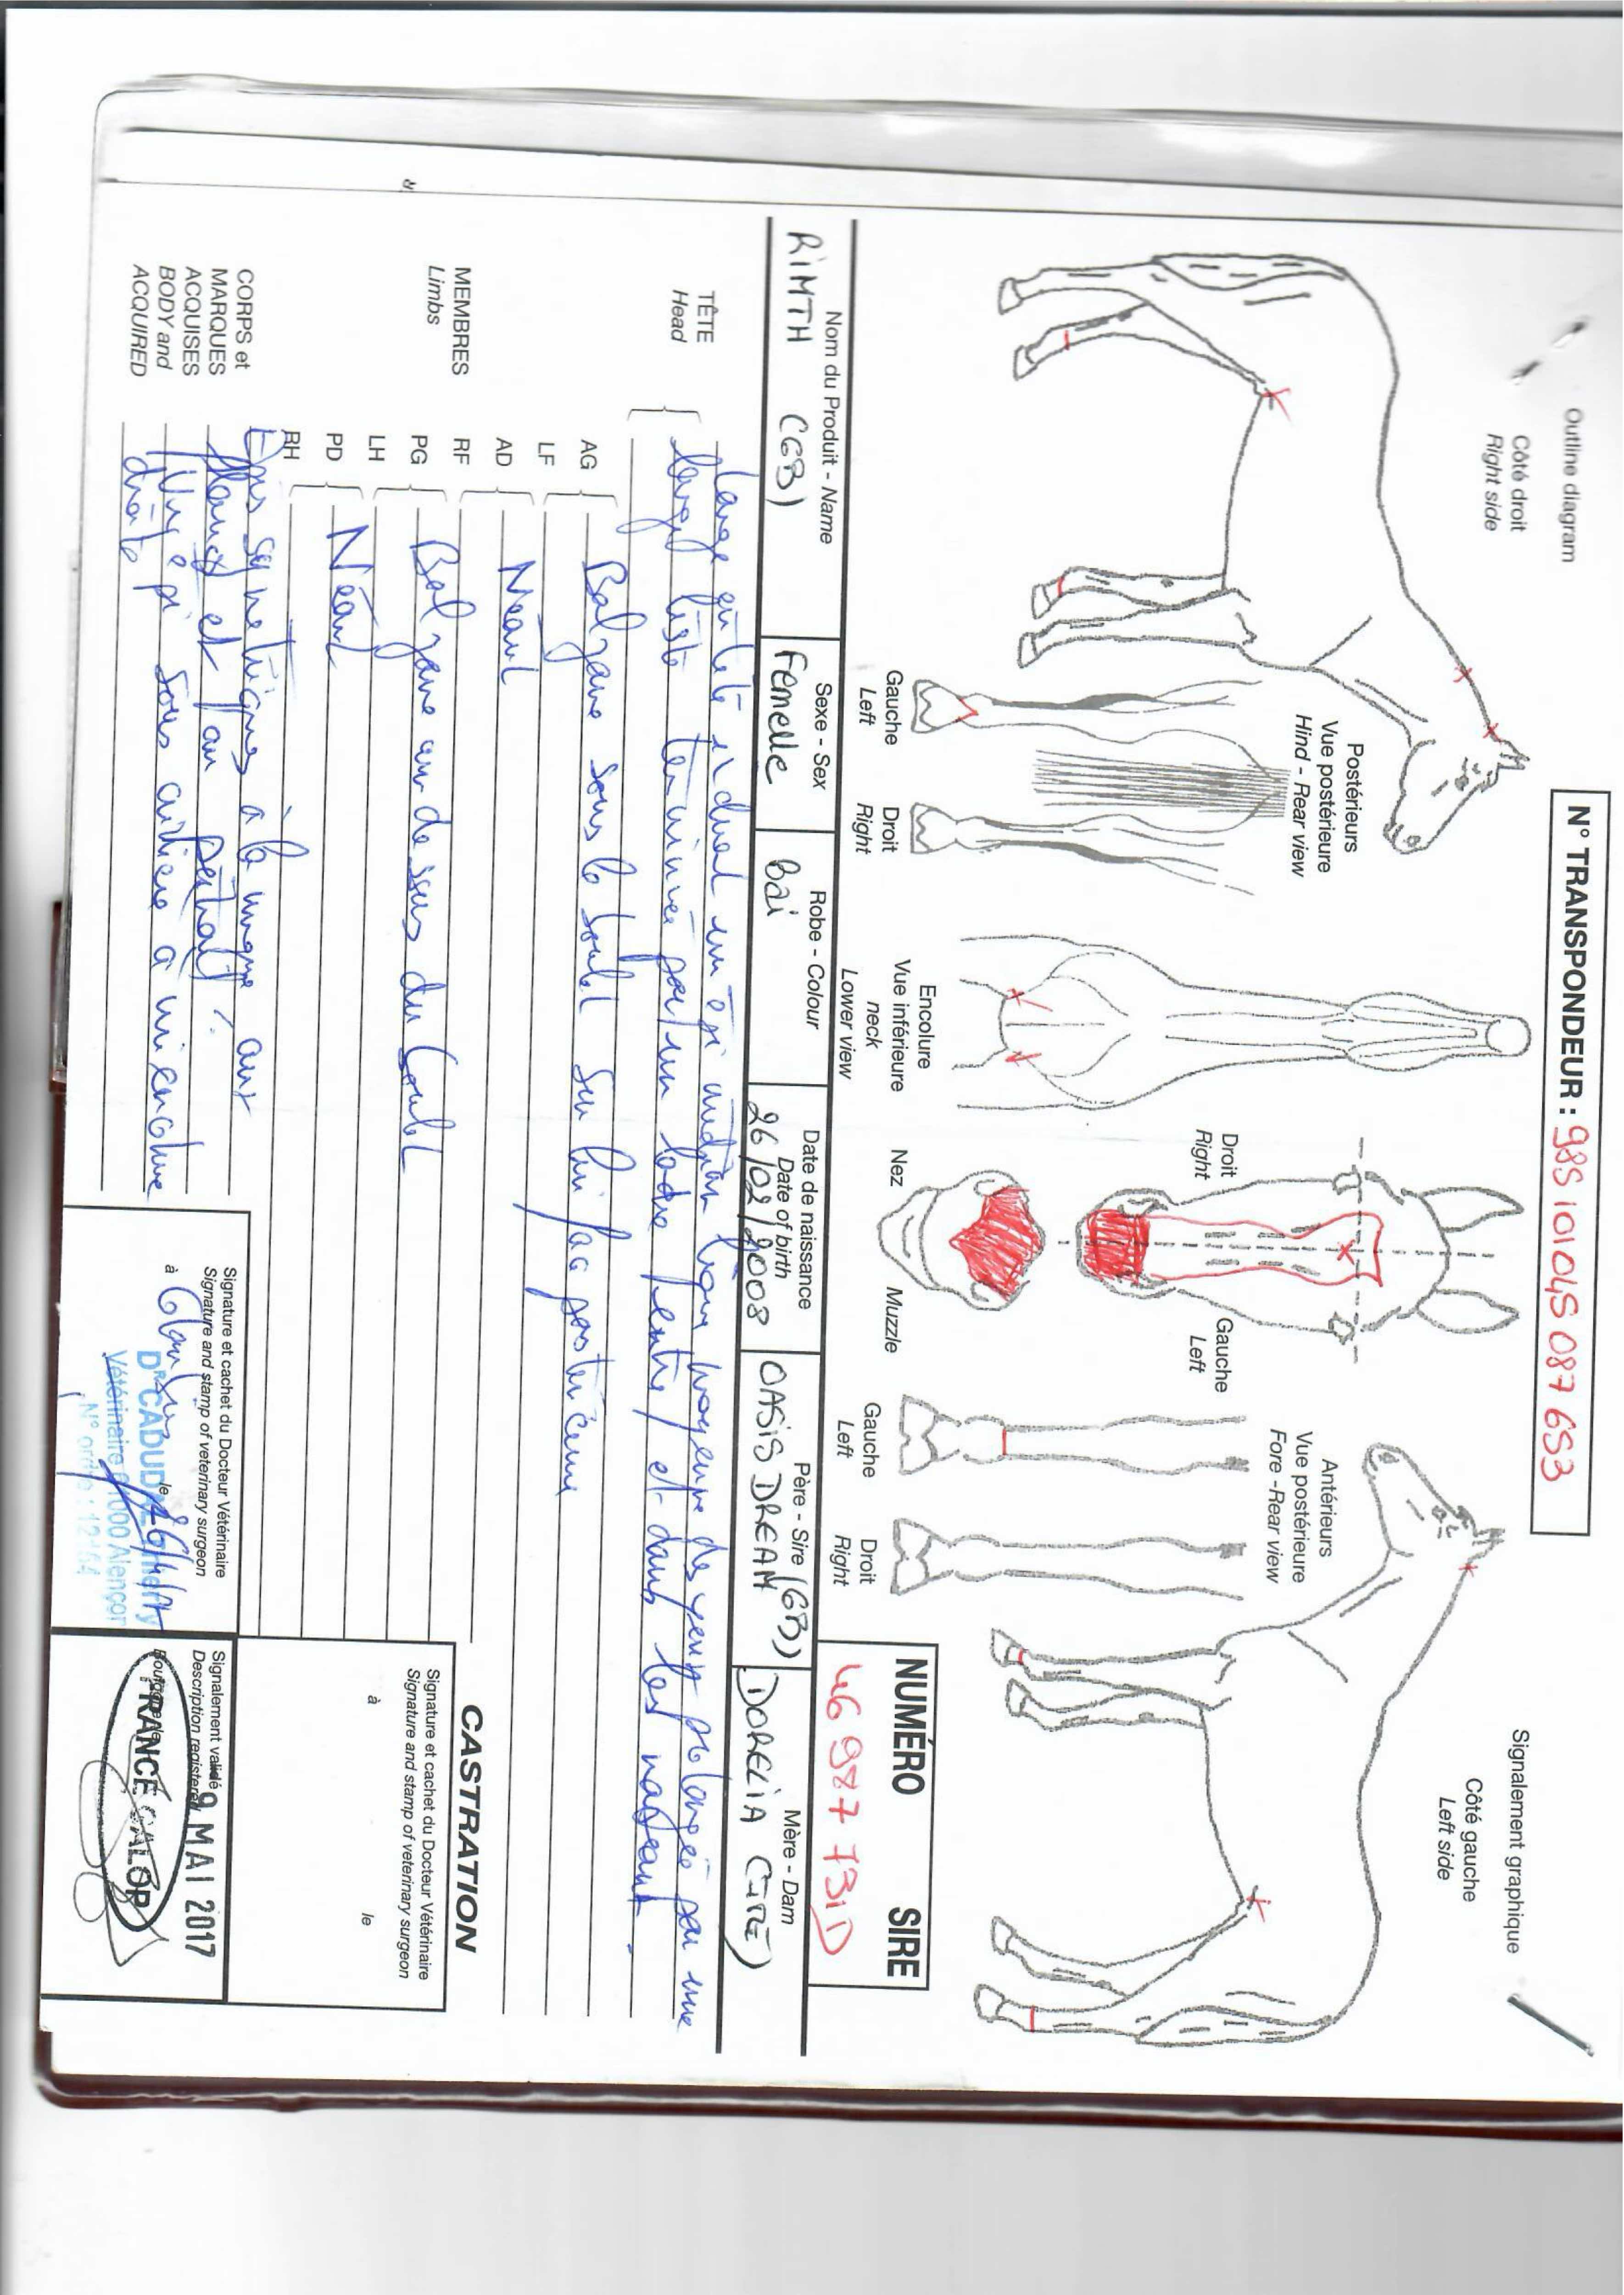 Outline diagram
Signalement graphique
N° TRANSPONDEUR : 985101045087653
Côté droit
Right side
Côté gauche
Left side
Postérieurs
Vue postérieure
Hind - Rear view
Gauche
Left
Droit
Right
Encolure
Vue inférieure
neck
Lower view
Droit
Right
Gauche
Left
Nez
Muzzle
Antérieurs
Vue postérieure
Fore -Rear view
Gauche
Left
Droit
Right
NUMÉRO SIRE
46 987 731D
Nom du Produit - Name
Sexe - Sex
Robe - Colour
Date de naissance
Date of birth
Père - Sire
Mère - Dam
RIMTH (GB)
Femelle
bai
26/02/2008
OASIS DREAM (GB)
DORELIA (IRE)
TÊTE
Head
en tête incluant un épi médian ligne moyenne des yeux prolongée par une
large liste terminée par un ladre entre et dans les naseaux.
MEMBRES
Limbs
AG
LF
Balzane sous le boulet sur sa face postérieure
AD
RF
Néant
PG
LH
Balzane au dessus du boulet
PD
RH
Néant
CORPS et
MARQUES
ACQUISES
BODY and
ACQUIRED
Epis symétriques à la nuque aux
flancs et au poitrail.
Un épi sous crinière à mi encolure
droite
CASTRATION
Signature et cachet du Docteur Vétérinaire
Signature and stamp of veterinary surgeon
à
le
Signature et cachet du Docteur Vétérinaire
Signature and stamp of veterinary surgeon
à
le
Dr CADUDAL
Vétérinaire 61000 Alençon
N° ordre : 12164
Signalement validé
Description registered
9 MAI 2017
FRANCE GALOP